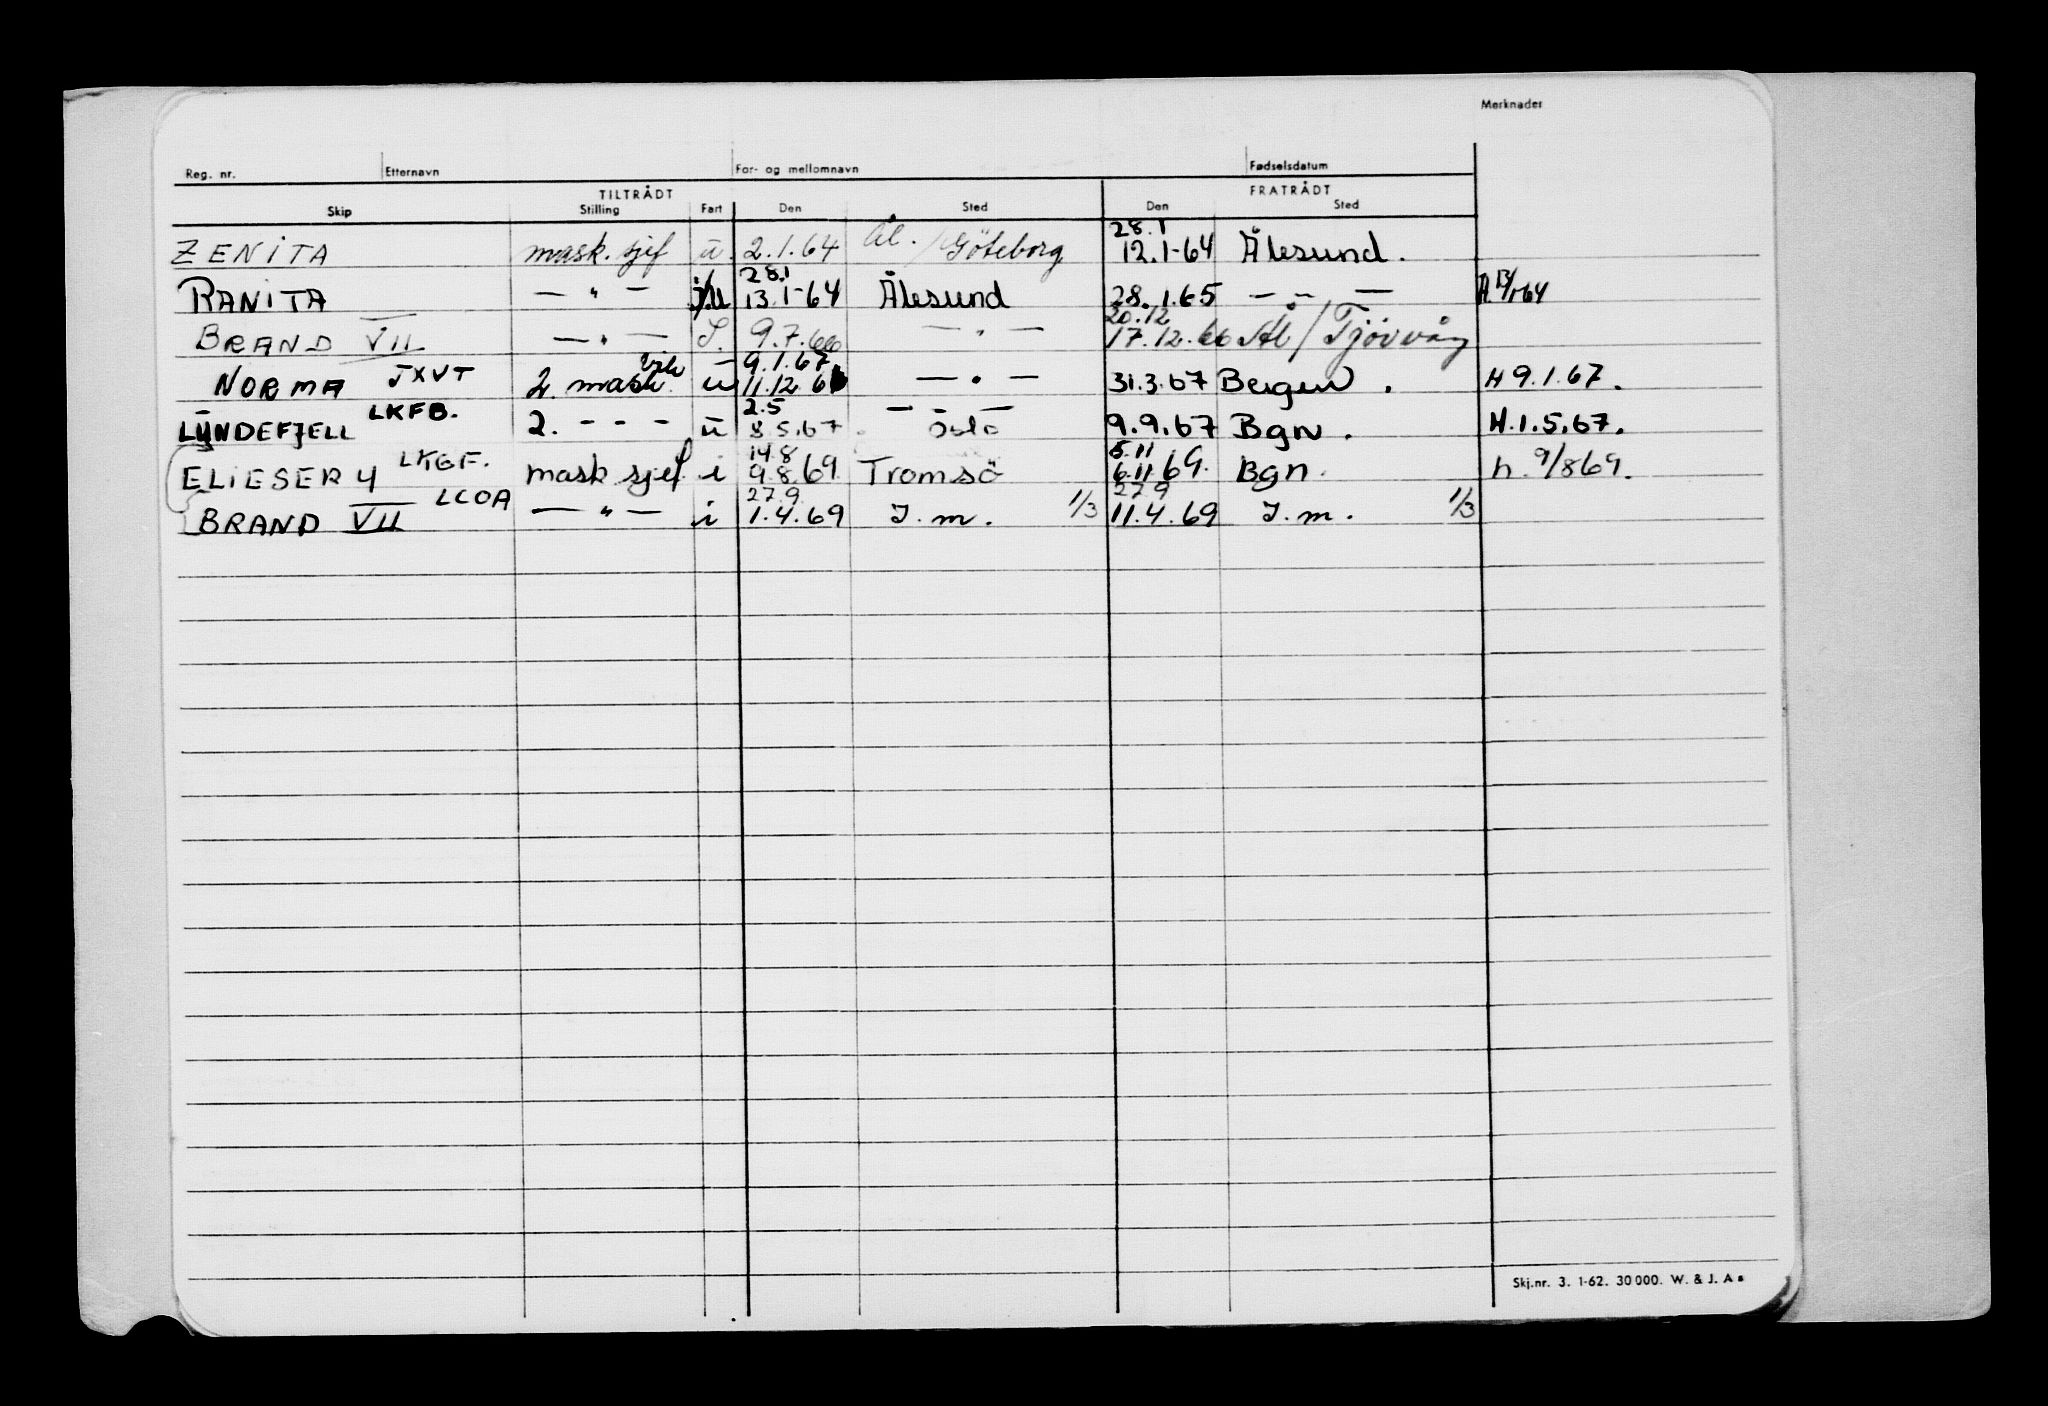 Merknader
Reg. nr. Etternavn For- og mellomnavn Fødselsdatum
TILTRÅDT FRATRÅDT
Skip Stilling Fart Den Sted Den Sted
28.1
ZENITA mask. sjef u. 2.1.64 Ål. / Göteborg 12.1-64 Ålesund.
28.1
RANITA — " — u 13.1-64 Ålesund 28.1.65 — " — A 13/1-64
20.12
BRAND VII — " — S. 9.7.66 — " — 17.12.66 Ål / Tjövvåg
vik 9.1.67
NORMA JXVT 2. mask. u 11.12.66 — " — 31.3.67 Bergen. H 9.1.67.
2.5
LYNDEFJELL LKFB. 2. - - - u 8.5.67 Oslo 9.9.67 Bgn. H.1.5.67.
14.8 5.11
ELIESER 4 LKGF. mask sjef i 9.8.69 Tromsö 6.11.69. Bgn. h. 9/8 69.
27.9 27.9
BRAND VII LCOA — " — i 1.4.69 J.m. 1/3 11.4.69 J.m. 1/3
Skj.nr. 3. 1-62. 30 000. W. & J. A s